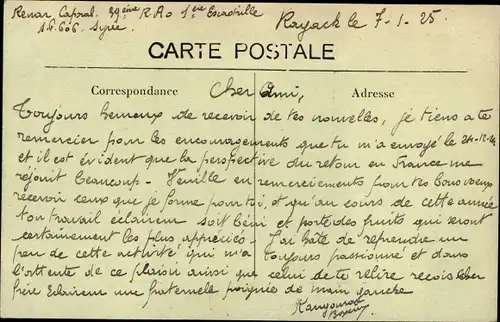 Renar Caporal. 39ème R.A.o 1ère Escadrille
S.P. 606. Syrie.
Rayack le 7-1-25.
CARTE POSTALE
Correspondance
Adresse
Cher Ami,
Toujours heureux de recevoir de tes nouvelles, je tiens a te
remercier pour les encouragements que tu m'a envoyé le
et il est évident que la perspective du retour en France me
réjouit beaucoup - Veuille en remerciements pour tes bons voeux
recevoir ceux que je forme pour toi, et qu'au cours de cette année
ton travail éclaireur soit béni et porte des fruits qui seront
certainement les plus appréciés - J'ai hâte de reprendre un
peu de cette activité, qui m'a toujours passionné et dans
l'attente de ce plaisir ainsi que celui de te relire reçois cher
frère Eclaireur une fraternelle poignée de main gauche
Kangourou